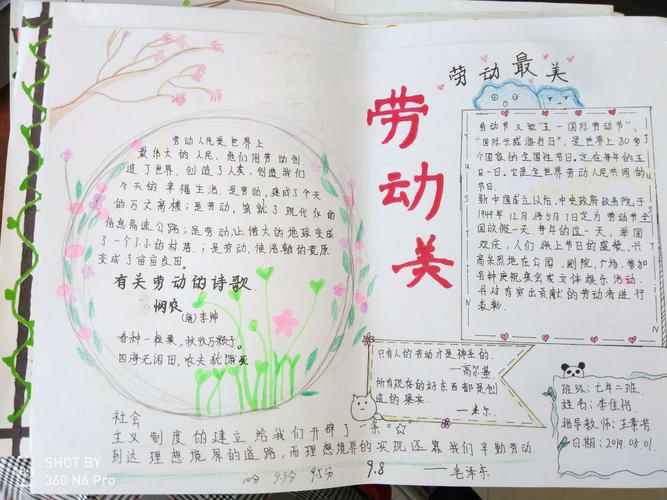 劳动人民是世界上
最伟大的人民，他们用劳动创
造了世界，创造了人类，创造我们
今天的幸福生活。是劳动，建成了今天
的万丈高楼；是劳动，筑就了现代化的
信息高速公路；是劳动让偌大的地球变成
了一个小小的村落；是劳动，使浩翰的荒原
变成了亩亩良田。
有关劳动的诗歌
悯农
(唐)李绅
春种一粒粟，秋收万颗子。
四海无闲田，农夫犹饿死
劳动美
劳动最美
劳动节又称"五一国际劳动节"、
"国际示威游行日"，是世界上80多个
国家的全国性节日，定在每年的五
月一日。它是全世界劳动人民共同的
节日。
新中国成立以后，中央政府政务院于
1949年12月将5月1日定为劳动节全
国放假一天。每年的这一天，举国
欢庆，人们换上节日的盛装，兴
高采烈地在公园，剧院，广场，参加
各种庆祝集会或文体娱乐活动，
并对有突出贡献的劳动者进行
表彰。
只有人的劳动才是神圣的。
—高尔基
所有现存的好东西都是创
造的果实。
—米尔
班级：七年二班
姓名：李佳怡
指导教师：王
日期：2019.05.01.
社会
主义制度的建立给我们开辟了一条
到达理想境界的道路，而理想境界的实现还靠我们辛勤劳动
——毛泽东
10分 9.9分 9.5分 9.8
SHOT BY
360 N6 Pro